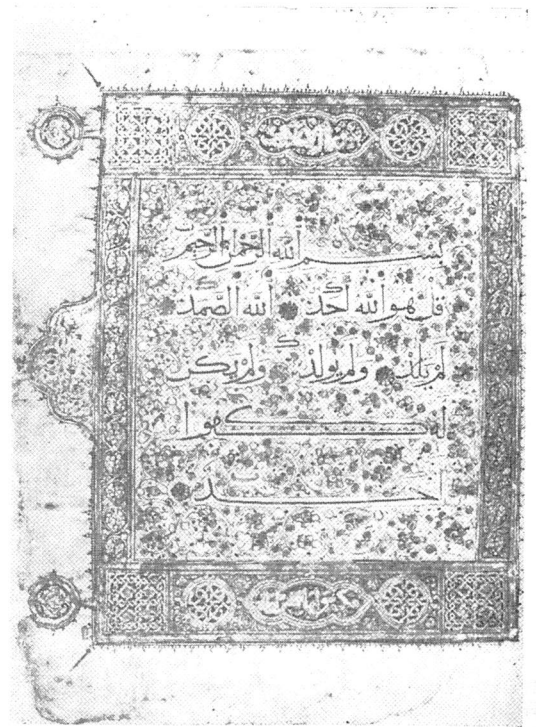 بِسْمِ ٱللَّهِ ٱلرَّحْمَٰنِ ٱلرَّحِيمِ
قُلْ هُوَ ٱللَّهُ أَحَدٌ ٱللَّهُ ٱلصَّمَدُ
لَمْ يَلِدْ وَلَمْ يُولَدْ وَلَمْ يَكُن
لَهُ كُفُوًا
أَحَدٌ